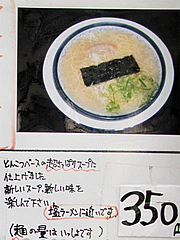 とんこつベースの超さっぱりスープに
仕上げました
新しいスープ、新しい味を
楽しんで下さい。
塩ラーメンに近いです
(麺の量はいっしょです)
350
円